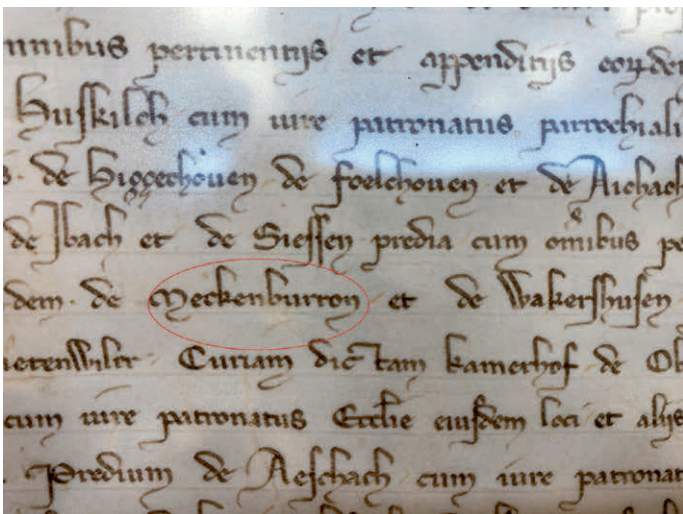 omnibus pertinentijs et appenditijs
Huſkilch cum iure patronatus parrochiali
s. de Higgechouen de foelchouen et de Aichach
de Jbach et de Gieſſen predia cum om̅ibus
dem. de Meckenburron et de Wakerſhuſen
Curiam dictam kamerhof de Ob
cum iure patronatus Eccl̅ie eiuſdem loci et alijs
Predium de Aeſchach cum iure patronat